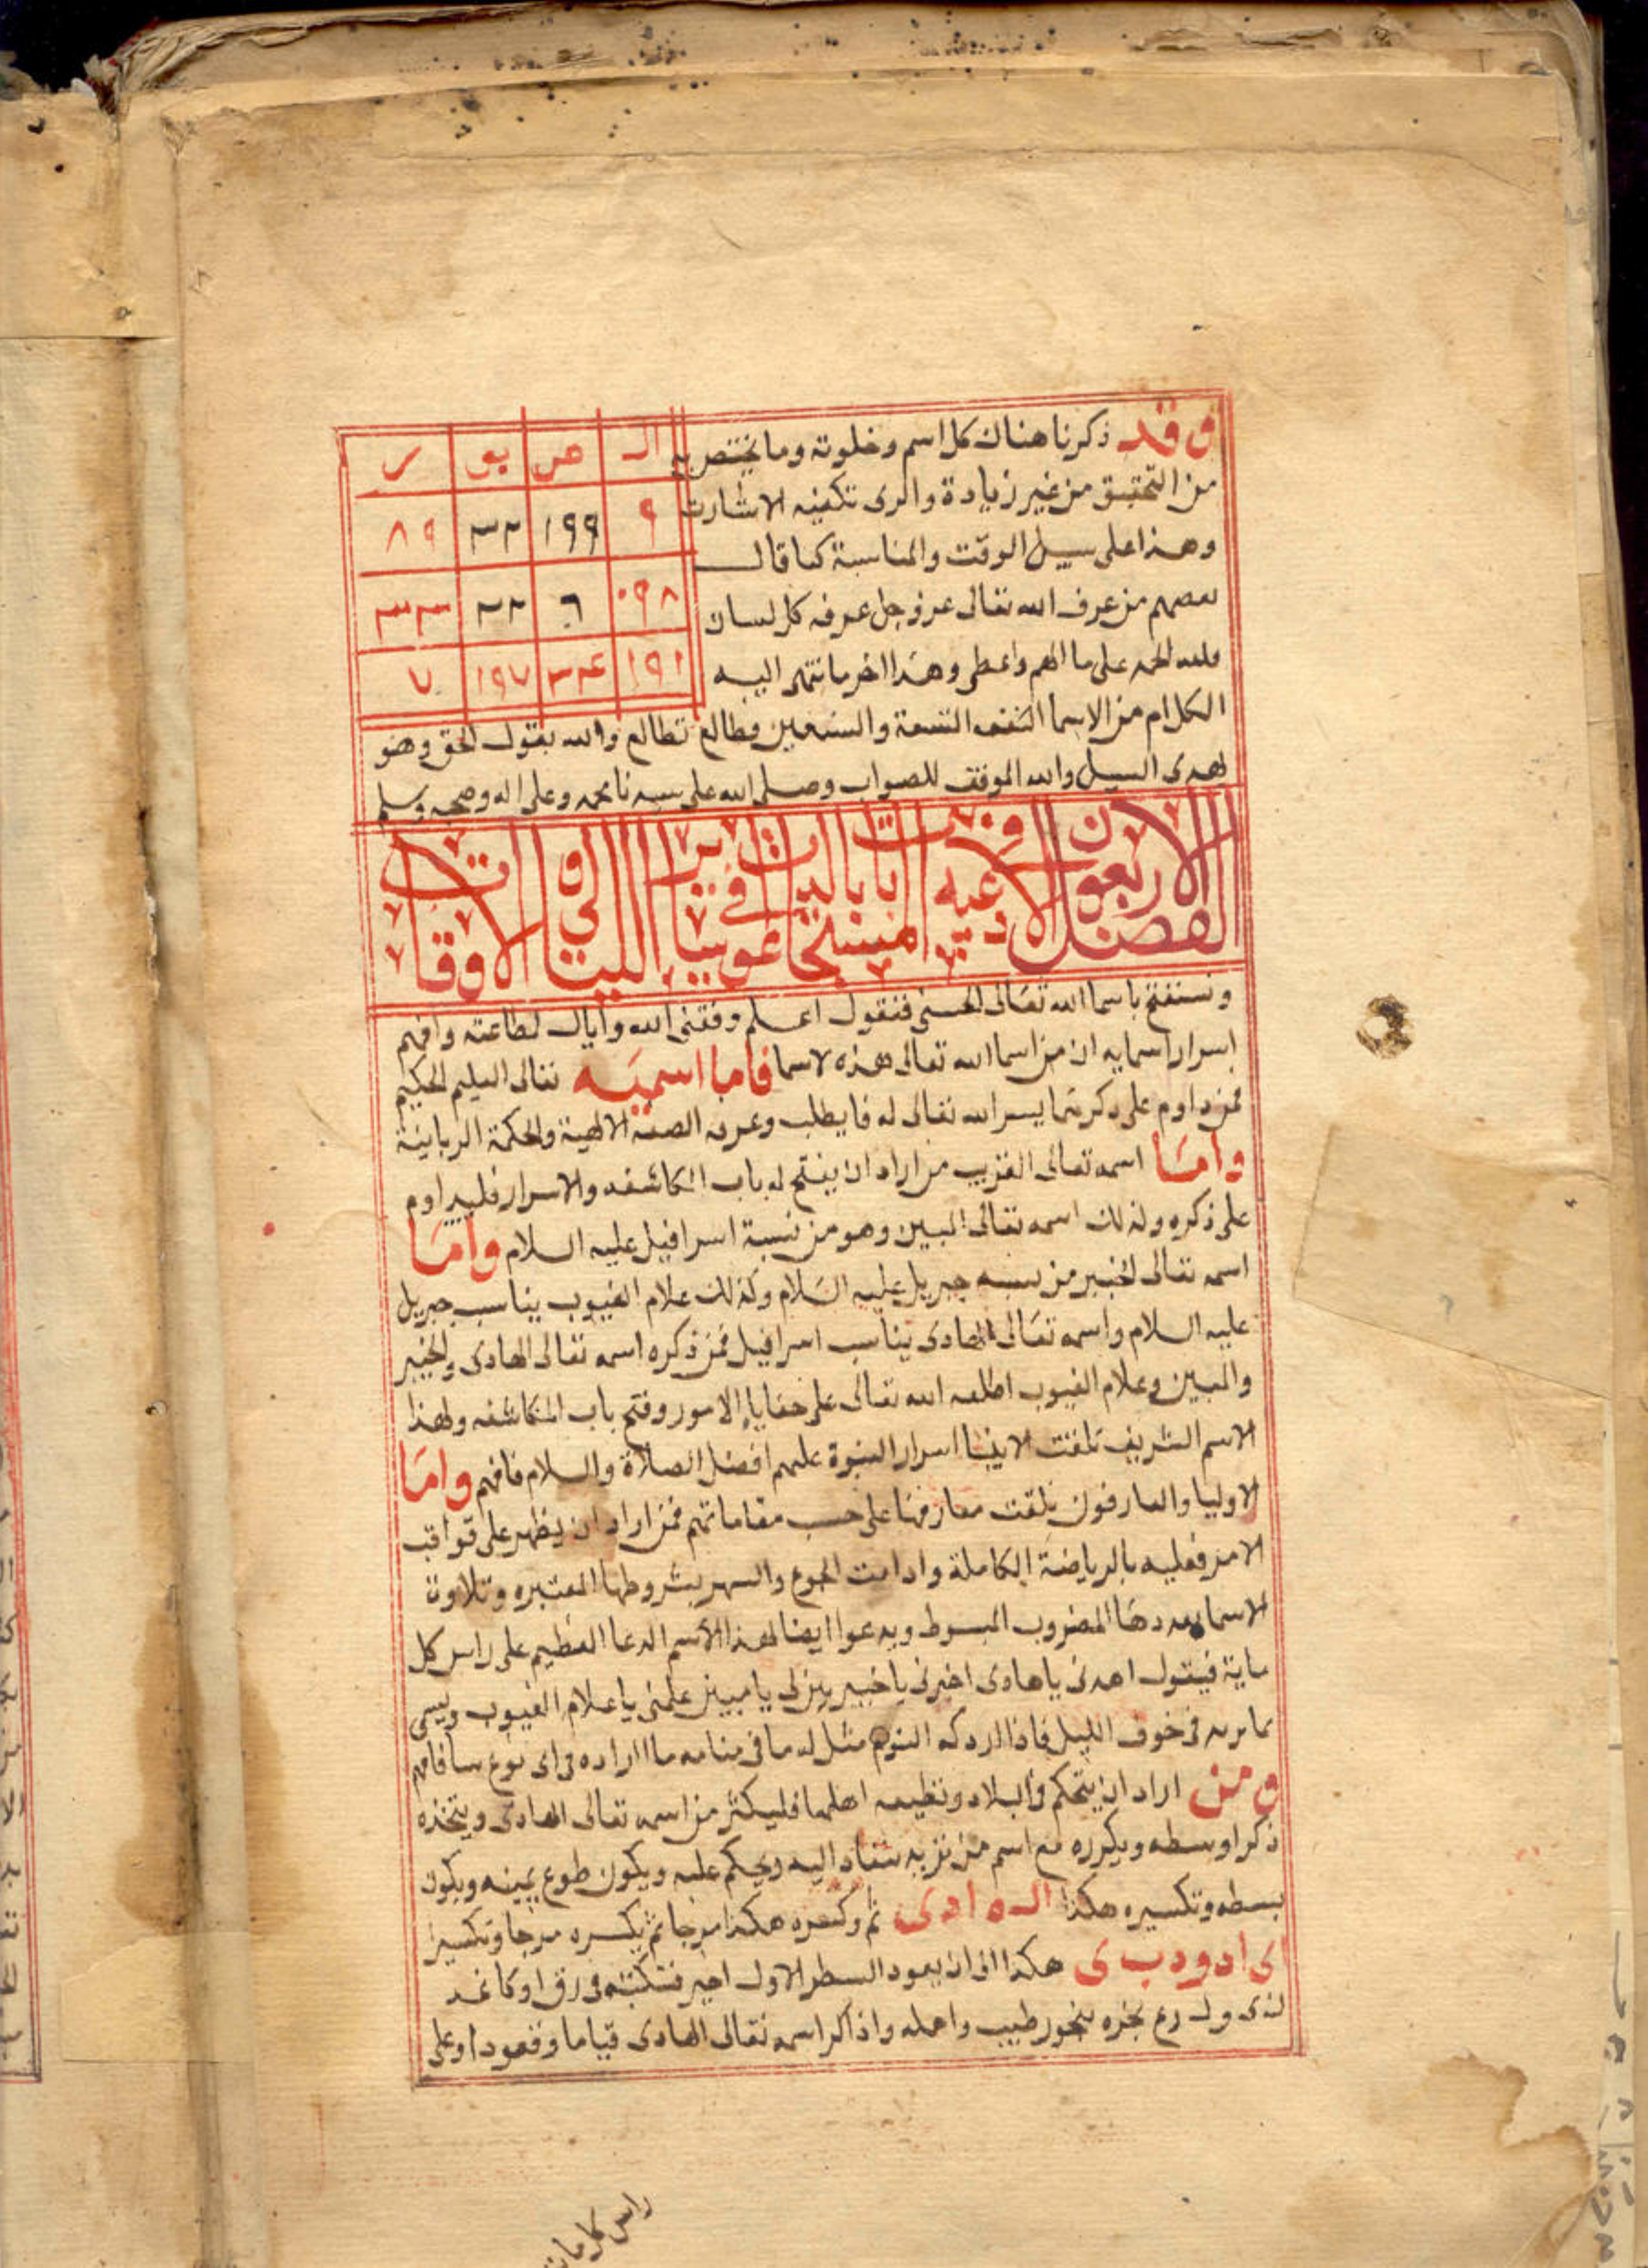 وقد ذكرنا هناك كل اسم وخلوته وما يختص به
من التحقيق من غير زيادة والرى تكفيه الاشارت
وهذا على سبيل الوقت والمناسبة كما قال
بعضهم من عرف الله تعالى عز وجل عرفه كل لسان
ولله الحمد على ما الهم واعطى وهذا اخر ما انتهى اليه
الـ ص بو ر
٩ ١٩٩ ٣٢ ٨٩
٠٩٨ ٦ ٢٢ ٣٣
١٩١ ٣٤ ١٩٧ ٧
الكلام من الاسما التسعة والتسعين فطالع تطالع والله يقول الحق وهو
يهدى السبيل والله الموفق للصواب وصلى الله على سيدنا محمد وعلى اله وصحبه وسلم
الفصل الاربعون الادعية المستجابات فى الاوقات
ونستفتح باسما الله تعالى الحسنى فنقول اعلم وفقنى الله واياك لطاعته وافهم
اسرار اسمايه ان من اسما الله تعالى هذه الاسما فاما اسميه تعالى العليم الحكيم
فمن داوم على ذكرهما يسر الله تعالى له فايطلب وعرفه الالهية والحكمة الربانية
واما اسمه تعالى القريب من اراد ان يفتح له باب المكاشفه والاسرار فليداوم
على ذكره وكذلك اسمه تعالى المبين وهو من نسبة اسرافيل عليه السلام واما
اسمه تعالى الخبير من نسبه جبريل عليه السلام وكذلك علام الغيوب يناسب جبريل
عليه السلام واسمه تعالى الهادى يناسب اسرافيل فمن ذكره اسمه تعالى الهادى والخبير
والمبين وعلام الغيوب اطلعه الله تعالى على خفايا الامور وفتح باب المكاشفه ولهذا
الاسم الشريف تلقت الانبيا اسرار النبوة عليهم افضل الصلاة والسلام فافهم واما
الاوليا والعارفون تلقت معارفها على حسب مقاماتهم فمن اراد ان يظهر على عواقب
الامر فعليه بالرياضة الكاملة وادامت الجوع والسهر بشروطها المعتبره وتلاوة
الاسما بعددها المضروب المبسوط ويدعوا ايضا لهذا الاسم الدعا العظيم على راس كل
ماية فيقول اهدنى يا هادى اخبرنى يا خبير بين لى يا مبين علمنى يا علام الغيوب ويسمى
ما يريد فى جوف الليل فاذا ادركه النوم مثل له ما فى منامه ما اراده فى اى نوع شا فافهم
ومن اراد ان يتحكم فى البلاد وتطيعه اهلها فليكثر من اسمه تعالى الهادى ويتخذه
ذكرا وبسطه ويكرره مع اسم من يريد ينقاد اليه ويحكم عليه ويكون طوع يمينه ويكون
بسطه وتكسيره هكذا الـ ه ا د ى ثم هكذا مزجا ثم يكسره مزجا وتكسيرا
ى ا د و د ب ى هكذا الى ان يعود السطر الاول اخير فتكتبه فى رق او كاغد
بخره ببخور طيب واحمله واذا ذكر اسمه تعالى الهادى قياما وقعودا وعلى
راس كل ماية